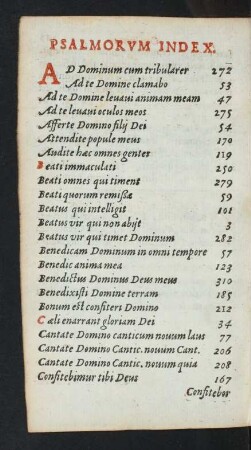 PSALMORVM INDEX.
AD Dominum cum tribularer 272
Ad te Domine clamabo 53
Ad te Domine leuaui animam meam 47
Ad te leuaui oculos meos 275
Afferte Domino filij Dei 54
Attendite popule meus 170
Audite hæc omnes gentes 119
Beati immaculati 250
Beati omnes qui timent 279
Beati quorum remissæ 59
Beatus qui intelligit 101
Beatus vir qui non abijt 3
Beatus vir qui timet Dominum 282
Benedicam Dominum in omni tempore 57
Benedic anima mea 123
Benedictus Dominus Deus meus 310
Benedixisti Domine terram 185
Bonum est confiteri Domino 212
Cæli enarrant gloriam Dei 34
Cantate Domino canticum nouum laus 77
Cantate Domino Cantic. nouum Cant. 206
Cantate Domino Cantic. nouum quia 208
Confitebimur tibi Deus 167
Confitebor